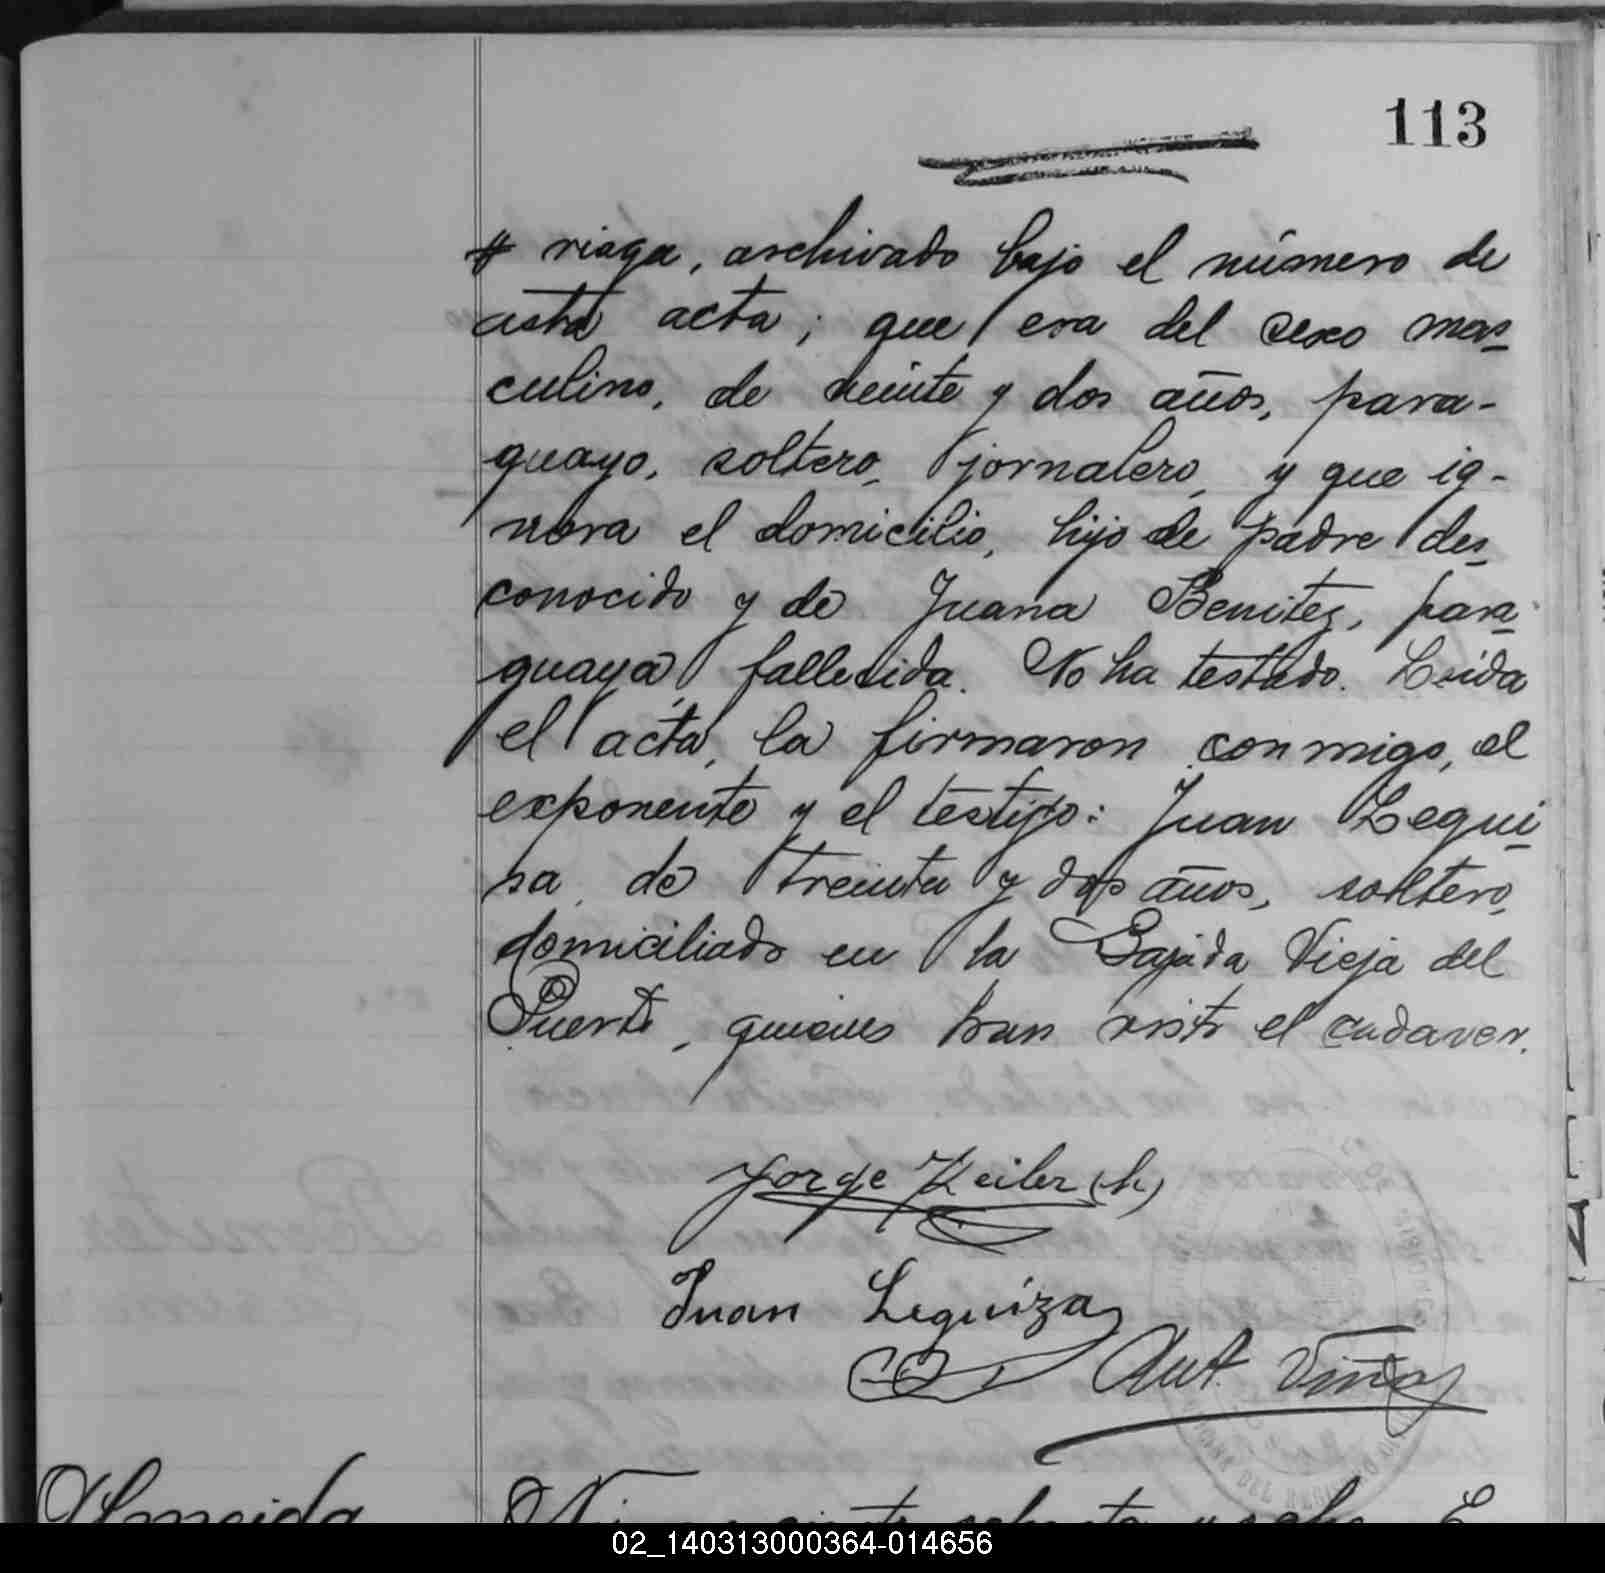 113
riaga, archivado bajo el número de
esta acta; que era del sexo mas-
culino, de veinte y dos años, para-
guayo, soltero, jornalero, y que ig-
nora el domicilio, hijo de padre des-
conocido y de Juana Benitez, para-
guaya, fallecida. No ha testado. Leida
el acta, la firmaron conmigo, el
exponente y el testigo: Juan Legui-
sa, de treinta y dos años, soltero,
domiciliado en la Bajada Vieja del
Puerto, quienes han visto el cadaver.
Jorge Keiler (h)
Juan Leguiza
Ant. Viña
Almeida
02_140313000364-014656